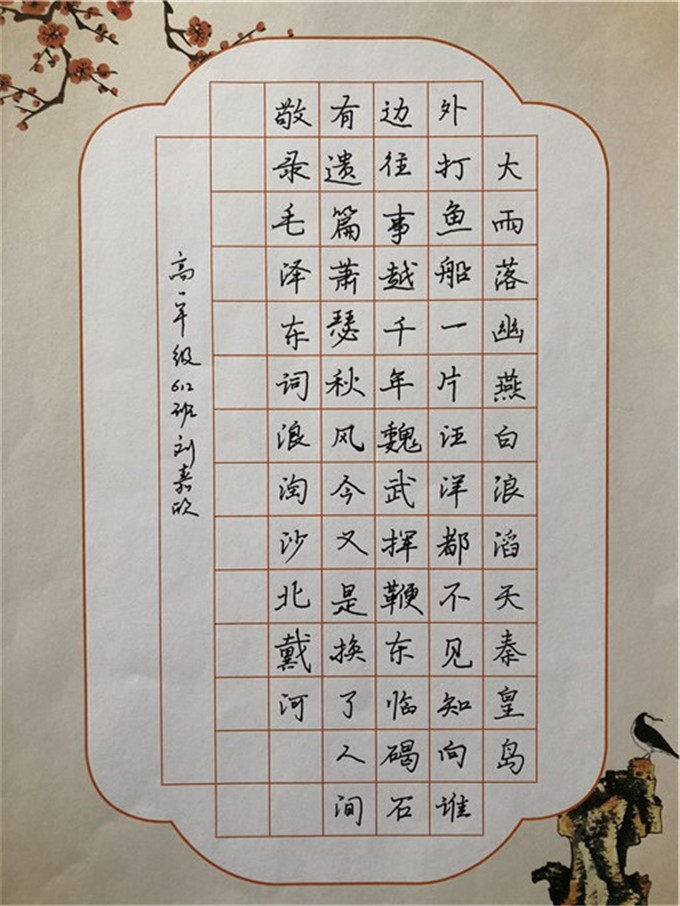 大雨落幽燕白浪滔天秦皇岛
外打鱼船一片汪洋都不见知向谁
边往事越千年魏武挥鞭东临碣石
有遗篇萧瑟秋风今又是换了人间
敬录毛泽东词浪淘沙北戴河
高一年级612班刘嘉欣